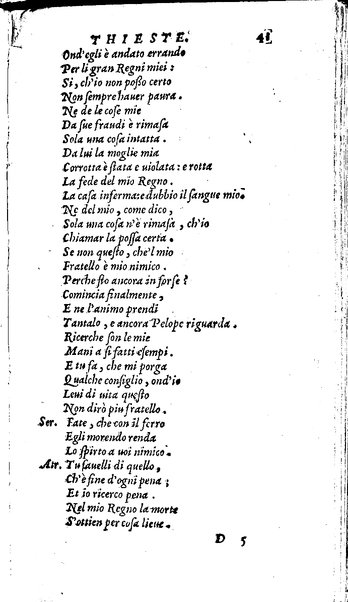 THIESTE. 41
Ond'egli è andato errando
Per li gran Regni miei:
Si, ch'io non poſſo certo
Non ſempre hauer paura.
Ne de le coſe mie
Da ſue fraudi è rimaſa
Sola una coſa intatta.
Da lui la moglie mia
Corrotta è ſtata e uiolata: e rotta
La fede del mio Regno.
La caſa inferma: e dubbio il ſangue mio.
Ne del mio, come dico,
Sola una coſa n'è rimaſa, ch'io
Chiamar la poſſa certa.
Se non queſto, che'l mio
Fratello è mio nimico.
Perche ſto ancora in forſe?
Comincia finalmente,
E ne l'animo prendi
Tantalo, e ancora Pelope riguarda.
Ricerche ſon le mie
Mani a ſi fatti eſempi.
E tu fa, che mi porga
Qualche conſiglio, ond'io
Leui di uita queſto
Non dirò piu fratello.
Ser. Fate, che con il ferro
Egli morendo renda
Lo ſpirto a uoi nimico.
Atr. Tu fauelli di quello,
Ch'è fine d'ogni pena;
Et io ricerco pena.
Nel mio Regno la morte
S'ottien per coſa lieue.
D 5